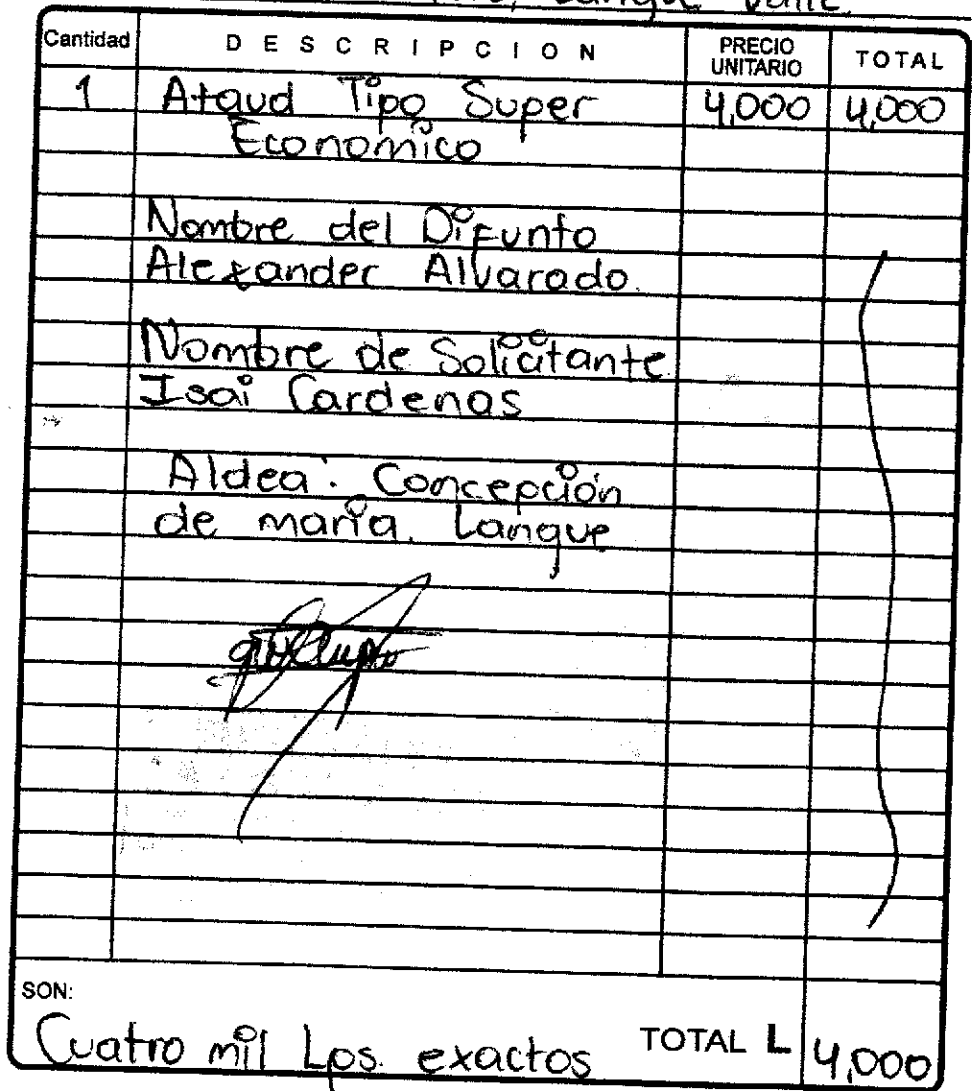 Langue Valle.
Cantidad DESCRIPCION PRECIO UNITARIO TOTAL
1 Ataud Tipo Super 4,000 4,000
Economico
Nombre del Difunto
Alexander Alvarado.
Nombre de Solicitante
Isai Cardenas
Aldea: Concepción
de maria. Langue
SON:
Cuatro mil Lps. exactos TOTAL L 4,000